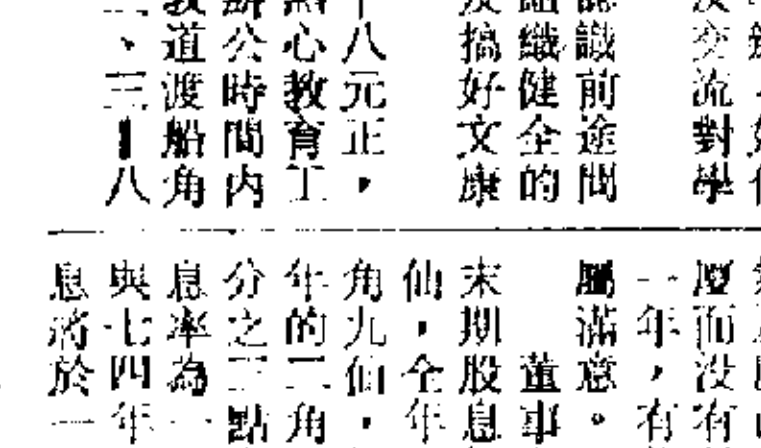 及交流對學
認識前途問
組織健全的
及搞好文康
十八元正，
熱心教育工
辦公時間内
教道渡船角
、三｜八
厦而没有
一年，有
屬滿意。
董事
末期股息
仙，全年
角九仙，
年的二角
分之三點
息率為一
與七四年
息將於一